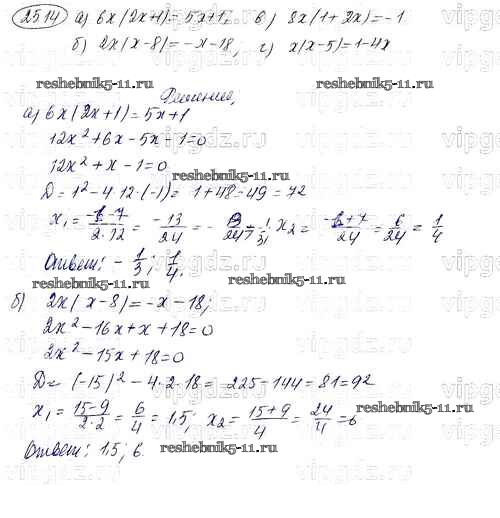 25.14 а) 6x(2x+1)=5x+1; в) 8x(1+2x)=-1
б) 2x(x-8)=-x-18; г) x(x-5)=1-4x
reshebnik5-11.ru reshebnik5-11.ru
Решение,
а) 6x(2x+1)=5x+1
12x²+6x-5x-1=0
reshebnik5-11.ru
12x²+x-1=0
D=1²-4·12·(-1)=1+48=49=7²
x₁=(-1-7)/(2·12)= = -1/3; x₂=(-1+7)/24=6/24=1/4
reshebnik5-11.ru
Ответ: -1/3; 1/4.
б) 2x(x-8)=-x-18;
reshebnik5-11.ru
2x²-16x+x+18=0
2x²-15x+18=0
D=(-15)²-4·2·18=225-144=81=9²
x₁=(15-9)/(2·2)=6/4=1,5; x₂=(15+9)/4=24/4=6
reshebnik5-11.ru
Ответ: 1,5; 6.
reshebnik5-11.ru
vipgdz.ru